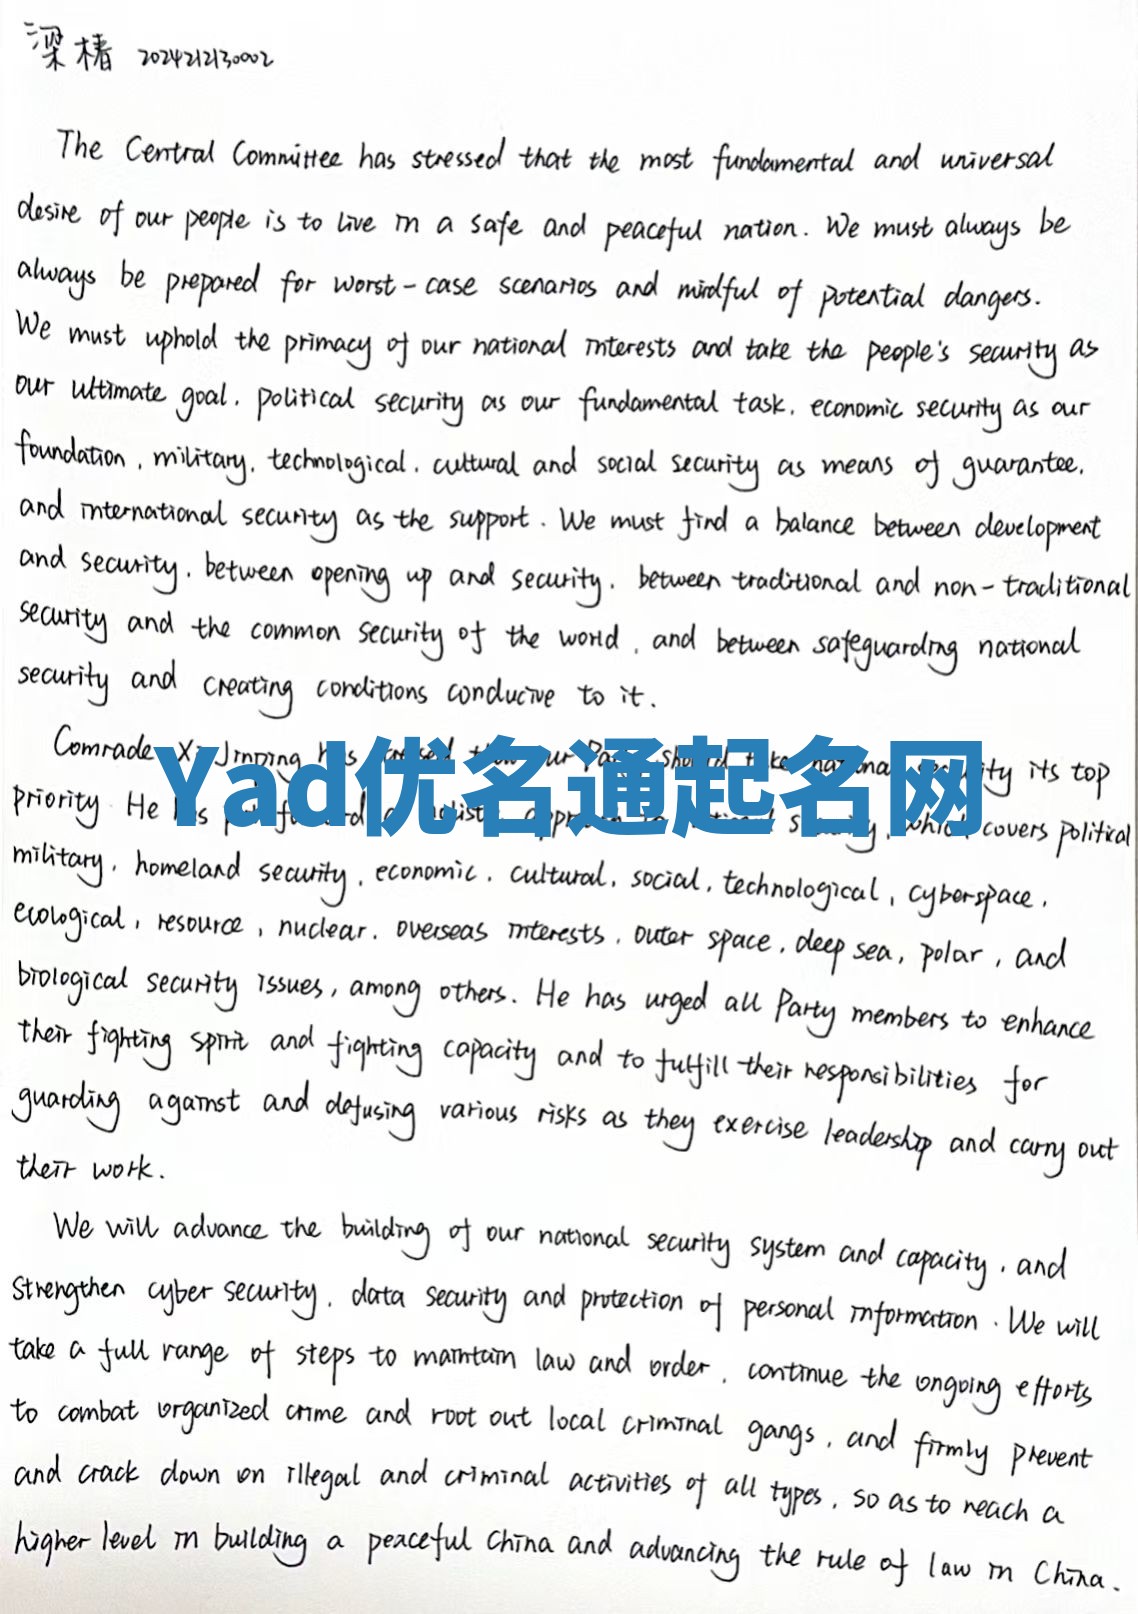 梁椿 2024212130002
The Central Committee has stressed that the most fundamental and universal
desire of our people is to live in a safe and peaceful nation. We must always be
always be prepared for worst-case scenarios and mindful of potential dangers.
We must uphold the primacy of our national interests and take the people's security as
our ultimate goal, political security as our fundamental task, economic security as our
foundation, military, technological, cultural and social security as means of guarantee,
and international security as the support. We must find a balance between development
and security, between opening up and security, between traditional and non-traditional
security and the common security of the world, and between safeguarding national
security and creating conditions conducive to it.
Comrade Xi Jinping has our Party should take national security its top
Yad优名通起名网
priority He has approach security, which covers political
military, homeland security, economic, cultural, social, technological, cyberspace,
ecological, resource, nuclear, overseas interests, outer space, deep sea, polar, and
biological security issues, among others. He has urged all Party members to enhance
their fighting spirit and fighting capacity and to fulfill their responsibilities for
guarding against and defusing various risks as they exercise leadership and carry out
their work.
We will advance the building of our national security system and capacity, and
strengthen cyber security, data security and protection of personal information. We will
take a full range of steps to maintain law and order, continue the ongoing efforts
to combat organized crime and root out local criminal gangs, and firmly prevent
and crack down on illegal and criminal activities of all types, so as to reach a
higher level in building a peaceful China and advancing the rule of law in China.